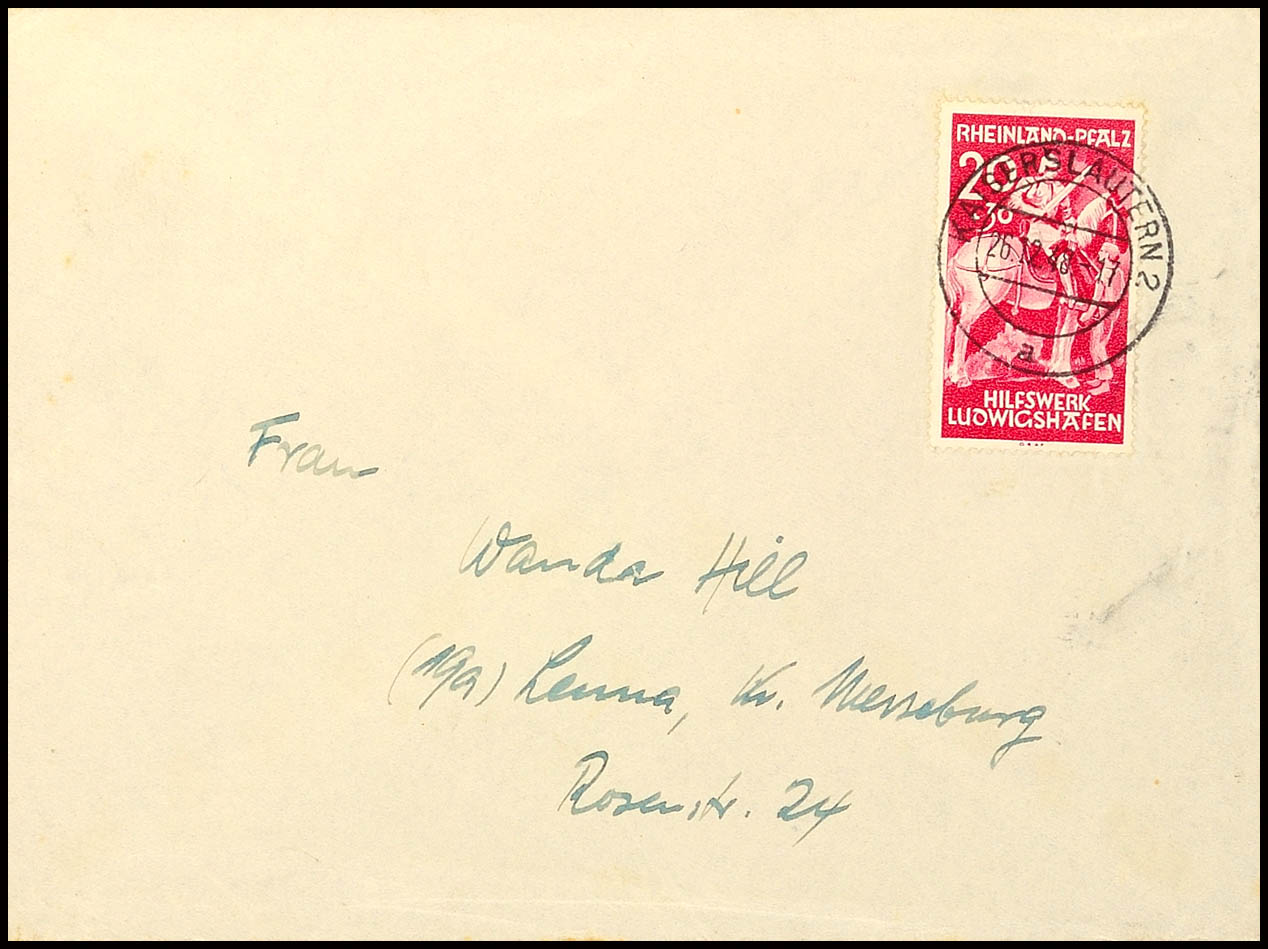 RHEINLAND-PFALZ
20
+30
KAISERSLAUTERN 2
26.12.48-17
a
HILFSWERK
LUDWIGSHAFEN
Frau
Wanda Hill
(19a) Leuna, Kr. Merseburg
Rosenstr. 24